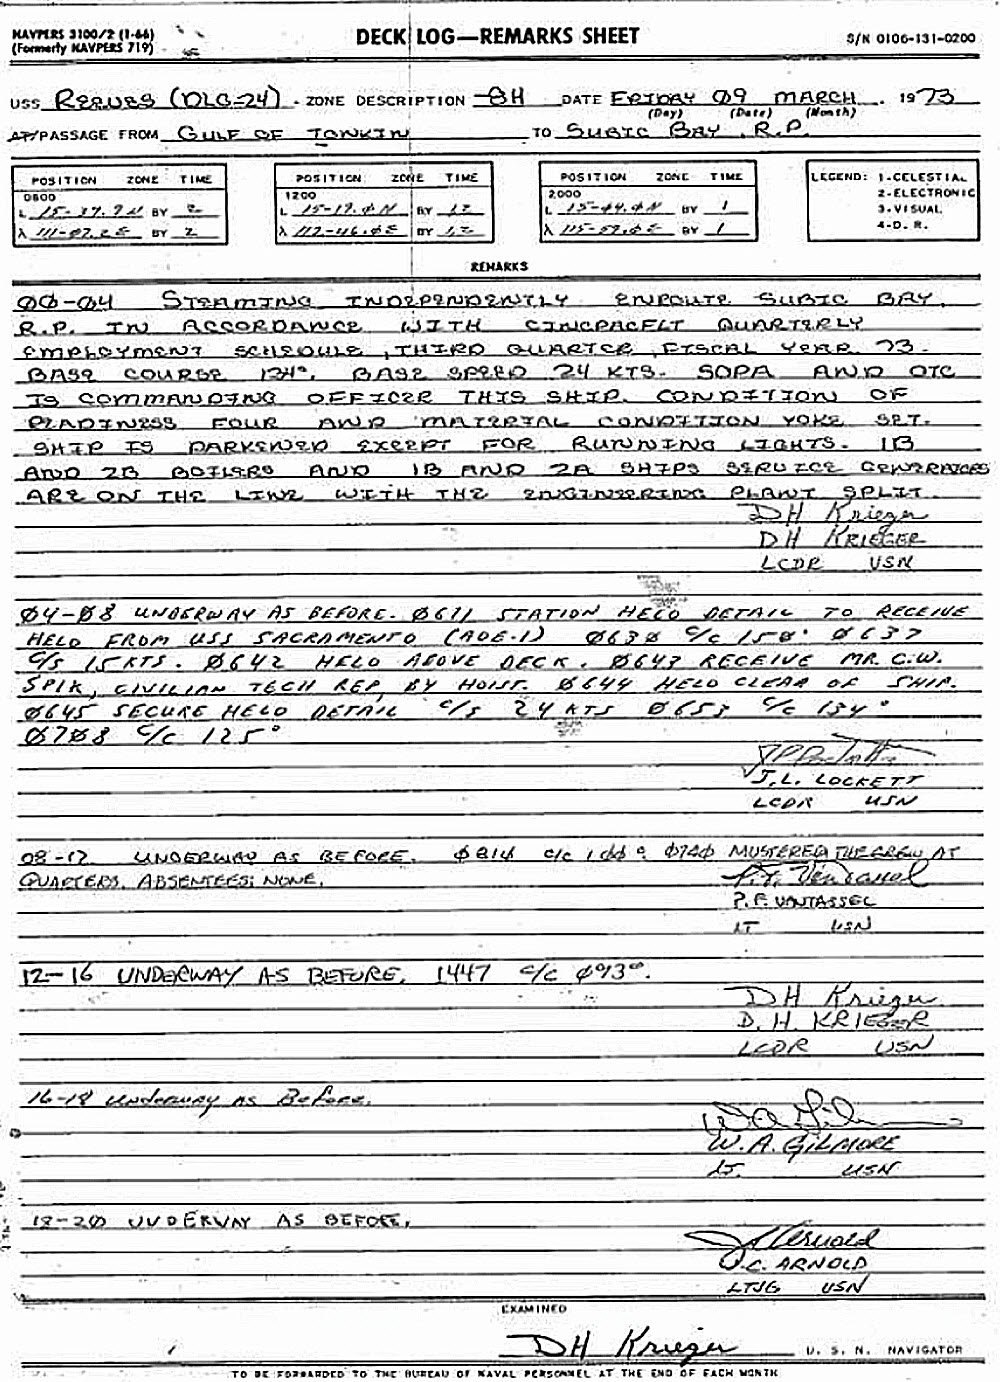 NAVPERS 3100/2 (1-66)
(Formerly NAVPERS 719)
DECK LOG—REMARKS SHEET
S/N 0106-131-0200
USS REEVES (DLG-24) - ZONE DESCRIPTION -8H DATE FRIDAY 09 MARCH , 1973
(Day) (Date) (Month)
AT/PASSAGE FROM GULF OF TONKIN TO SUBIC BAY, R.P.
POSITION ZONE TIME
0800
L BY 2
λ BY 2
POSITION ZONE TIME
1200
L BY 12
λ BY 12
POSITION ZONE TIME
2000
L BY 1
λ BY 1
LEGEND: 1-CELESTIAL
2-ELECTRONIC
3-VISUAL
4-D. R.
REMARKS
00-04 STEAMING INDEPENDENTLY ENROUTE SUBIC BAY,
R.P. IN ACCORDANCE WITH CINCPACFLT QUARTERLY
EMPLOYMENT SCHEDULE, THIRD QUARTER, FISCAL YEAR 73.
BASE COURSE 134°. BASE SPEED 24 KTS. SOPA AND OTC
IS COMMANDING OFFICER THIS SHIP. CONDITION OF
READINESS FOUR AND MATERIAL CONDITION YOKE SET.
SHIP IS DARKENED EXCEPT FOR RUNNING LIGHTS. 1B
AND 2B BOILERS AND 1B AND 2A SHIPS SERVICE GENERATORS
ARE ON THE LINE WITH THE ENGINEERING PLANT SPLIT.
DH Krieger
DH KRIEGER
LCDR USN
04-08 UNDERWAY AS BEFORE. 0611 STATION HELO DETAIL TO RECEIVE
HELO FROM USS SACRAMENTO (AOE-1) 0630 C/C 150° 0637
C/S 15 KTS. 0642 HELO ABOVE DECK. 0643 RECEIVE MR. C.W.
SPIK, CIVILIAN TECH REP, BY HOIST. 0644 HELO CLEAR OF SHIP.
0645 SECURE HELO DETAIL C/S 24 KTS 0653 C/C 134°
0708 C/C 125°
J.L. LOCKETT
LCDR USN
08-12 UNDERWAY AS BEFORE. 0814 C/C 100° 0740 MUSTERED THE CREW AT
QUARTERS. ABSENTEES: NONE.
P.F. VanTassel
P.F. VANTASSEL
LT USN
12-16 UNDERWAY AS BEFORE. 1447 C/C 093°.
DH Krieger
D. H. KRIEGER
LCDR USN
16-18 Underway as Before.
W. A. GILMORE
LT. USN
18-20 UNDERWAY AS BEFORE.
J.C. Arnold
J.C. ARNOLD
LTJG USN
EXAMINED
DH Krieger U. S. N. NAVIGATOR
TO BE FORWARDED TO THE BUREAU OF NAVAL PERSONNEL AT THE END OF EACH MONTH